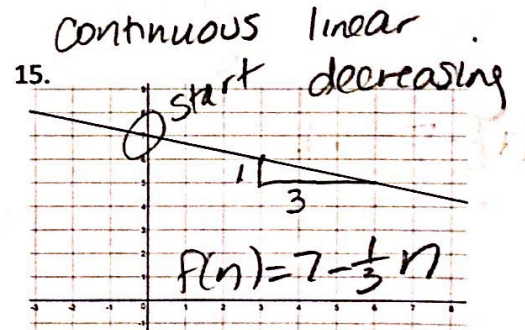 continuous linear
15. start decreasing
1
3
f(n)=7-1/3 n